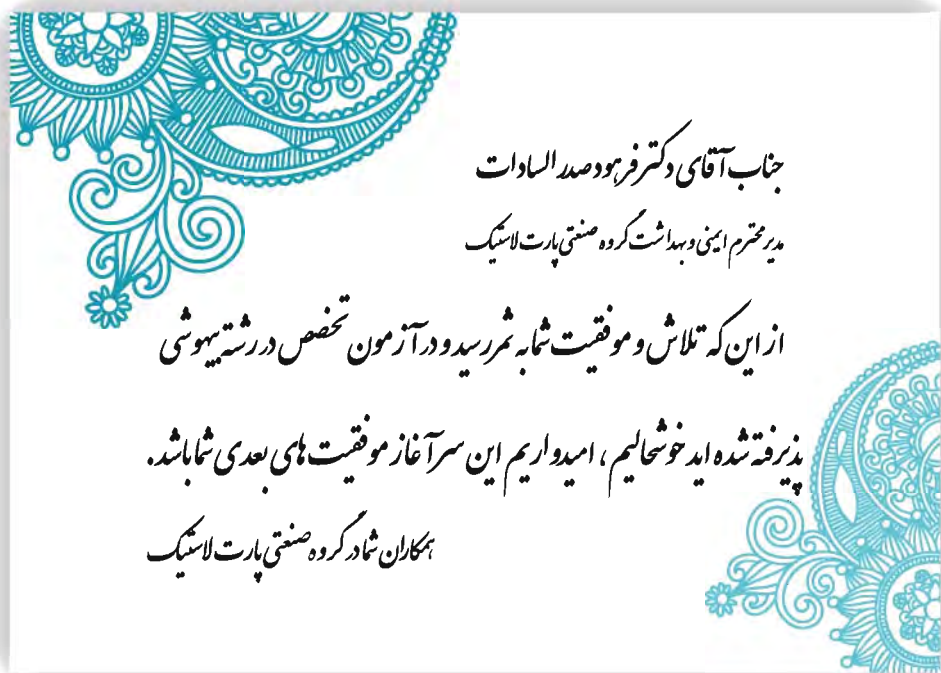 جناب آقای دکتر فرهود صدر السادات
مدیر محترم ایمنی و بهداشت گروه صنعتی پارت لاستیک
از این که تلاش و موفقیت شما به ثمر رسید و در آزمون تخصص در رشته بیهوشی
پذیرفته شده اید خوشحالیم ، امیدواریم این سرآغاز موفقیت های بعدی شما باشد.
همکاران شما در گروه صنعتی پارت لاستیک